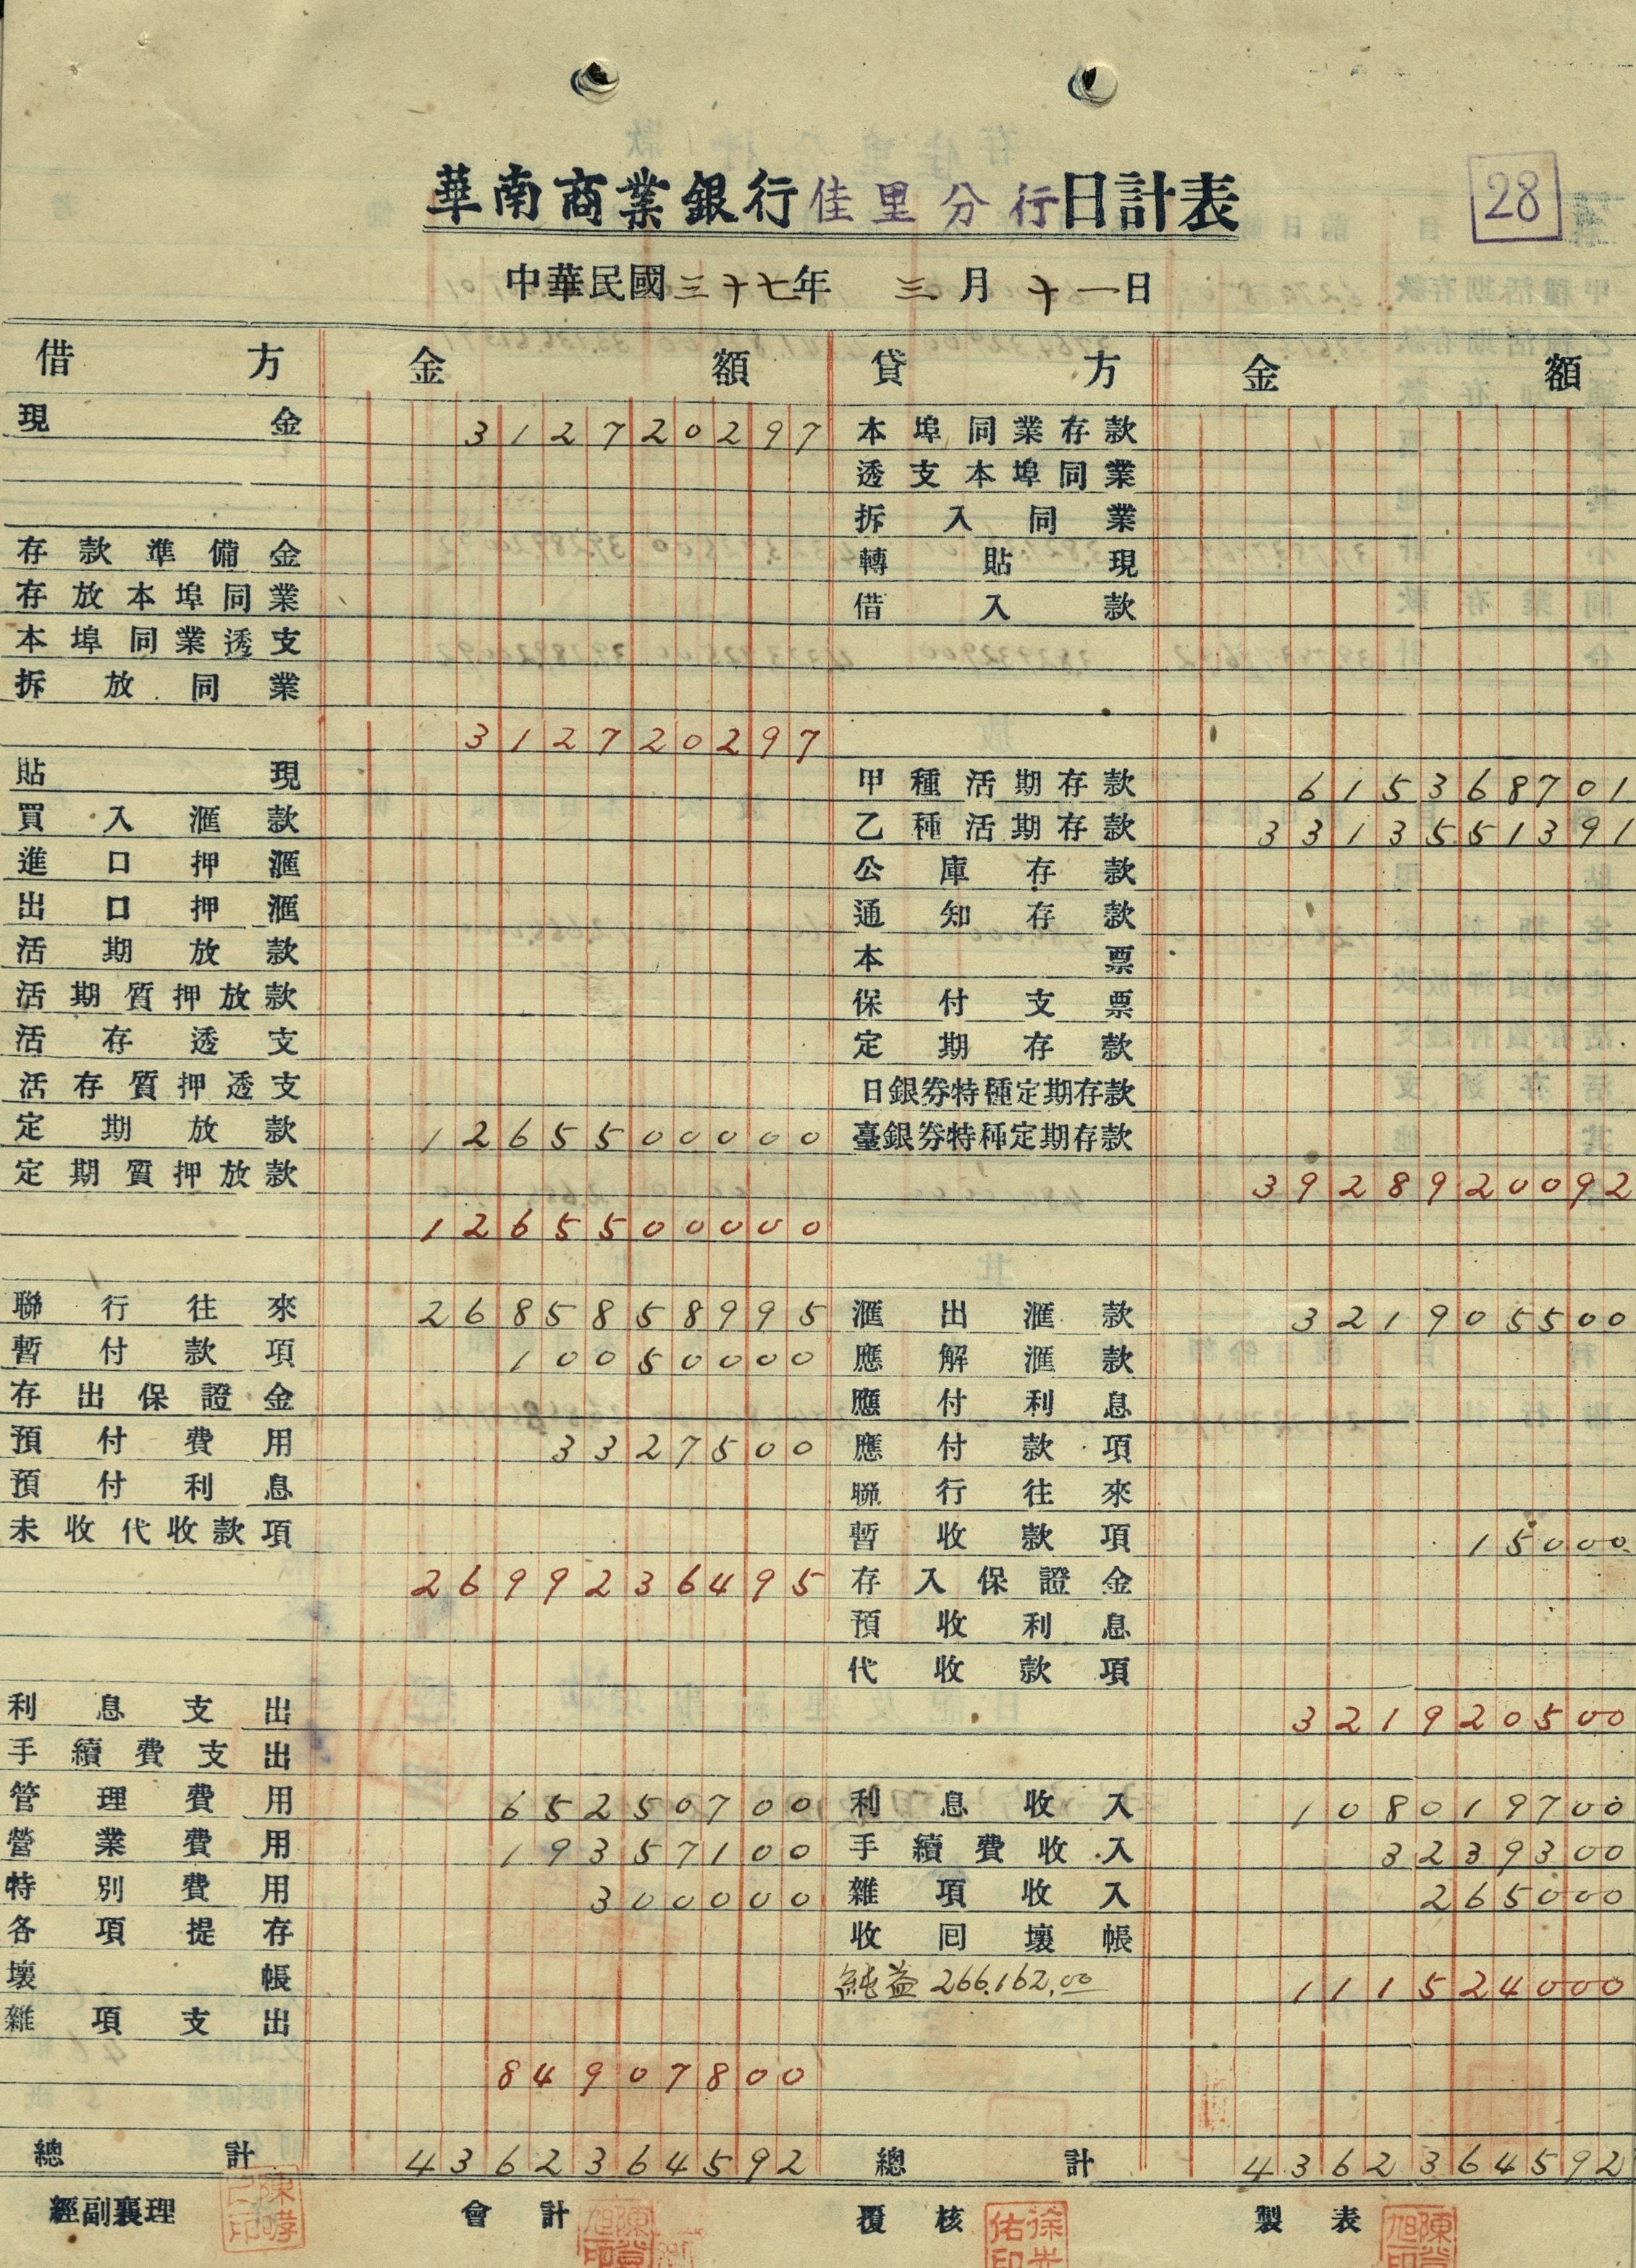 華南商業銀行佳里分行日計表
28
中華民國三十七年 三月十一日
借方 金額 貸方 金額
現金 312720297 本埠同業存款
透支本埠同業
拆入同業
存款準備金 轉貼現
存放本埠同業 借入款
本埠同業透支
拆放同業
312720297
貼現 甲種活期存款 615368701
買入滙款 乙種活期存款 3313551391
進口押滙 公庫存款
出口押滙 通知存款
活期放款 本票
活期質押放款 保付支票
活存透支 定期存款
活存質押透支 日銀券特種定期存款
定期放款 1265500000 臺銀券特種定期存款
定期質押放款 3928920092
1265500000
聯行往來 2685858995 滙出滙款 321905500
暫付款項 10050000 應解滙款
存出保證金 應付利息
預付費用 3327500 應付款項
預付利息 聯行往來
未收代收款項 暫收款項 15000
2699236495 存入保證金
預收利息
代收款項
利息支出 321920500
手續費支出
管理費用 65250700 利息收入 108019700
營業費用 19357100 手續費收入 3239300
特別費用 300000 雜項收入 265000
各項提存 收回壞帳
壞帳 純益 266,162.00 111524000
雜項支出
84907800
總計 4362364592 總計 4362364592
經副襄理 會計 覆核 製表